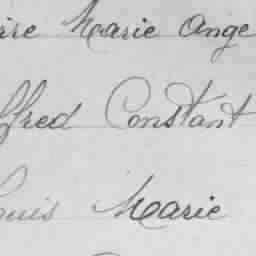 Marie Ange
ffred Constant
ouis Marie